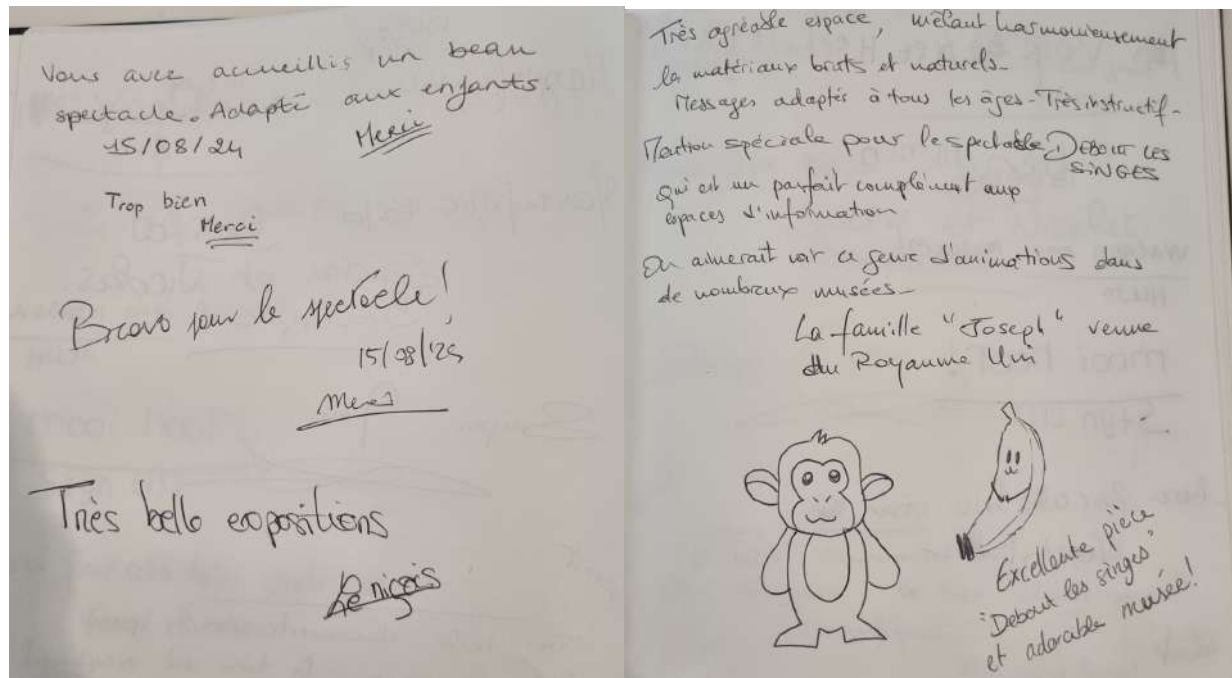 Vous avez accueillis un beau
spectacle. Adapté aux enfants.
15/08/24 Merci
Trop bien
Merci
Bravo pour le spectacle!
15/08/25
Merci
Très belle expositions
Très agréable espace, mêlant harmonieusement
les matériaux bruts et naturels-
Messages adaptés à tous les âges-Très instructif-
Mention spéciale pour le spectacle DEBOUT LES
SINGES
qui est un parfait complément aux
espaces d'information
On aimerait voir ce genre d'animations dans
de nombreux musées-
La famille "Joseph" venue
du Royaume Uni
Excellente pièce
"Debout les singes"
et adorable musée!